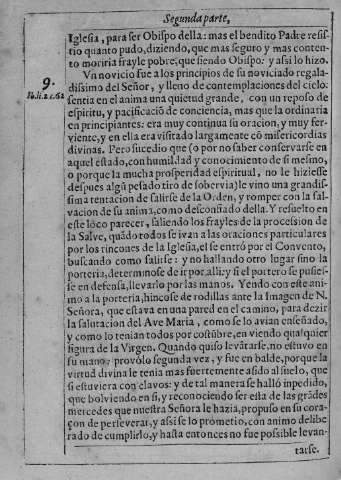 Segunda parte,
Iglesia, para ser Obispo della: mas el bendito Padre resis-
tio quanto pudo, diziendo, que mas seguro y mas conten-
to moriria frayle pobre, que siendo Obispo: y assi lo hizo.
9.
Vn nouicio fue a los principios de su nouiciado regala-
dissimo del Señor, y lleno de contemplaciones del cielo:
sentia en el anima vna quietud grande, con vn reposo de
espiritu, y pacificaciō de conciencia, mas que la ordinaria
en principiantes: era muy continua su oracion, y muy fer-
uiente, y en ella era visitado largamente cō misericordias
diuinas. Pero sucedio que (o por no saber conseruarse en
aquel estado, con humildad y conocimiento de si mesmo,
o porque la mucha prosperidad espiritual, no le hiziesse
despues algū pesado tiro de soberuia) le vino vna grandis-
sima tentacion de salirse de la Orden, y romper con la sal-
uacion de su anima, como desconfiado della. Y resuelto en
este loco parecer, saliendo los frayles de la procession de
la Salue, quādo todos se ivan a las oraciones particulares
por los rincones de la Iglesia, el se entrò por el Conuento,
buscando como salirse: y no hallando otro lugar sino la
porteria, determinose de ir por alli, y si el portero se pusies-
se en defensa, lleuarlo por las manos. Yendo con este ani-
mo a la porteria, hincose de rodillas ante la Imagen de N.
Señora, que estaua en vna pared en el camino, para dezir
la salutacion del Aue Maria, como se lo auian enseñado,
y como lo tenian todos por costūbre, en viendo qualquier
figura de la Virgen. Quando quiso leuātarse, no estuuo en
su mano: prouòlo segunda vez, y fue en balde, porque la
virtud diuina le tenia mas fuertemente asido al suelo, que
si estuuiera con clauos: y de tal manera se hallò inpedido,
que boluiendo en si, y reconociendo ser esta de las grādes
mercedes que nuestra Señora le hazia, propuso en su cora-
çon de perseuerar, y assi se lo prometio, con animo delibe
rado de cumplirlo, y hasta entonces no fue possible leuan-
tarse.